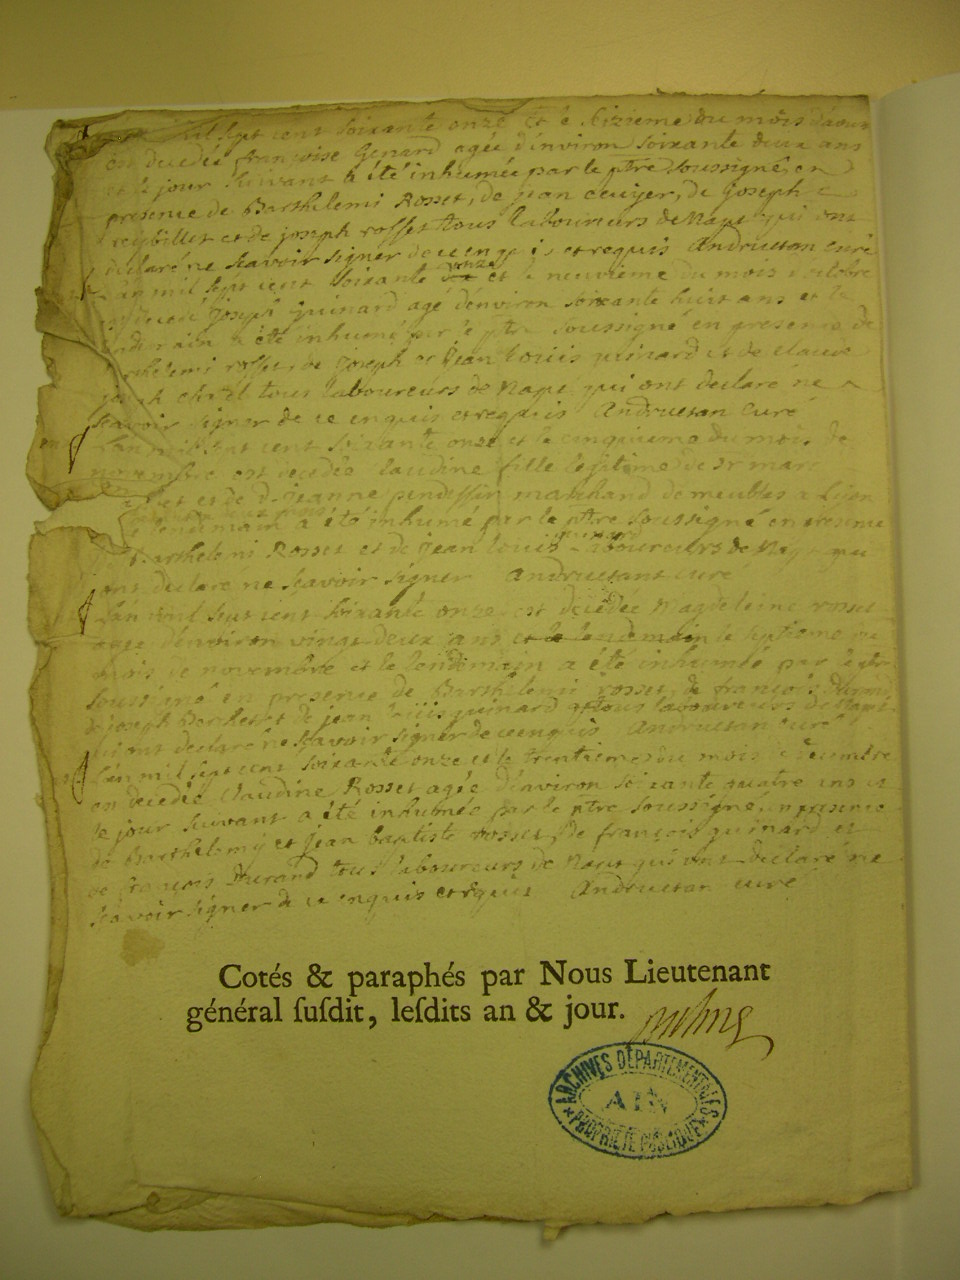 mil sept cent soixante onze et le sizieme du mois d'aout
est decedée françoise Genard agée d'environ soixante deux ans
et le jour suivant a été inhumée par le ptre soussigné en
presence de Barthelemi Rosset, de jean cuvier, de joseph
reybillet et de joseph rosset tous laboureurs de Nape qui ont
declaré ne scavoir signer de ce enquis et requis Andruetan curé
L'an mil sept cent soixante onze et le neuvieme du mois octobre
est decedé Joseph guinard agé d'environ soixante huit ans et le
lendemain a été inhumé par le ptre soussigné en presence de
Barthelemi rosset, de Joseph et Jean Louis guinard et de claude
joseph tous laboureurs de Nape qui ont declaré ne
scavoir signer de ce enquis et requis Andruetan curé
L'an mil sept cent soixante onze et le cinquieme du mois de
novembre est decedée claudine fille legitime de sr marc
et de d. jeanne marchand de meubles a Lyon
le lendemain a été inhumé par le ptre soussigné en presence
guinard
de Barthelemi Rosset et de Jean Louis laboureurs de qui
ont declaré ne scavoir signer Andruetant curé
L'an mil sept cent soixante onze est decedée Magdeleine rosset
agée d'environ vingt deux ans et le lendemain le septieme du
mois de novembre et le lendemain a été inhumée par le ptre
soussigné en presence de Barthelemi rosset, de françois Durand
de joseph Berthet et de jean louis guinard tous laboureurs de Nape
qui ont declaré ne scavoir signer de ce enquis Andruetan curé
L'an mil sept cent soixante onze et le trentieme du mois decembre
est decedée claudine Rosset agée d'environ soixante quatre ans et
le jour suivant a été inhumée par le ptre soussigné en presence
de Barthelemy et Jean baptiste rosset, de françois guinard et
de françois Durand tous laboureurs de Nape qui ont declaré ne
scavoir signer de ce enquis et requis Andruetan curé
Cotés & paraphés par Nous Lieutenant
général suſdit, leſdits an & jour.
ARCHIVES DÉPARTEMENTALES
AIN
PROPRIÉTÉ PUBLIQUE